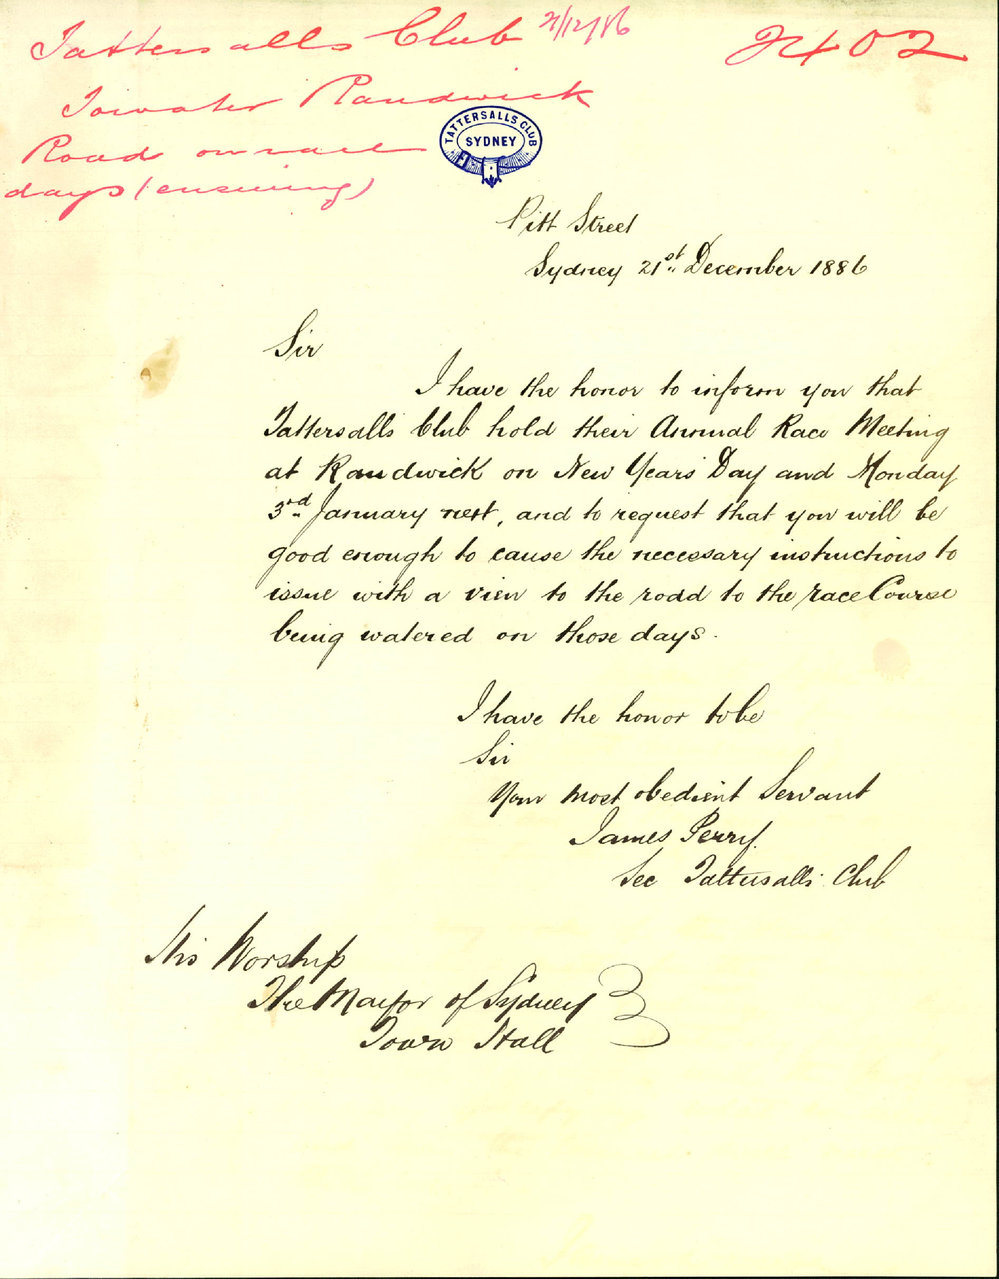 Tattersalls Club 21/12/86
2402
To water Randwick
Road on race
days (ensuing)
TATTERSALLS CLUB
SYDNEY
Pitt Street
Sydney 21st December 1886
Sir
I have the honor to inform you that
Tattersalls Club hold their Annual Race Meeting
at Randwick on New Years' Day and Monday
3rd January next, and to request that you will be
good enough to cause the necessary instructions to
issue with a view to the road to the race Course
being watered on those days.
I have the honor to be
Sir
Your most obedient Servant
James Perry.
Sec Tattersalls Club
His Worship
The Mayor of Sydney
Town Hall